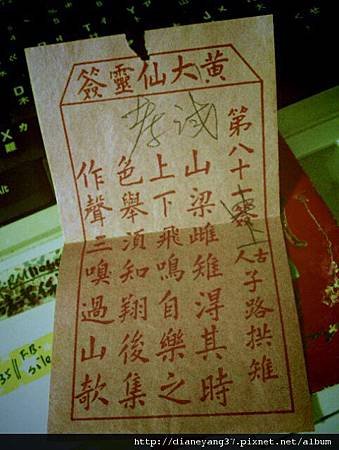 黃大仙靈簽
第八十一簽 古人子路拱雉
山梁雌雉淂其時
上下飛鳴自樂之
色舉湏知翔後集
作聲三嗅過山欹
http://dianeyang37.pixnet.net/album